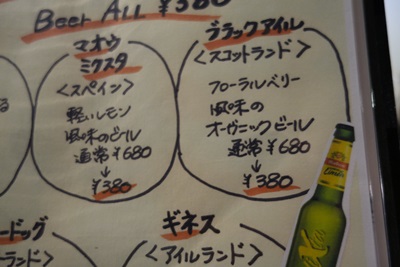 Beer ALL ¥380
マオウ
ミクスタ
<スペイン>
軽いレモン
風味のビール
通常¥680
↓
¥380
ブラックアイル
<スコットランド>
フローラルベリー
風味の
オーガニックビール
通常¥680
↓
¥380
る
ードッグ
ットランド>
ギネス
<アイルランド>